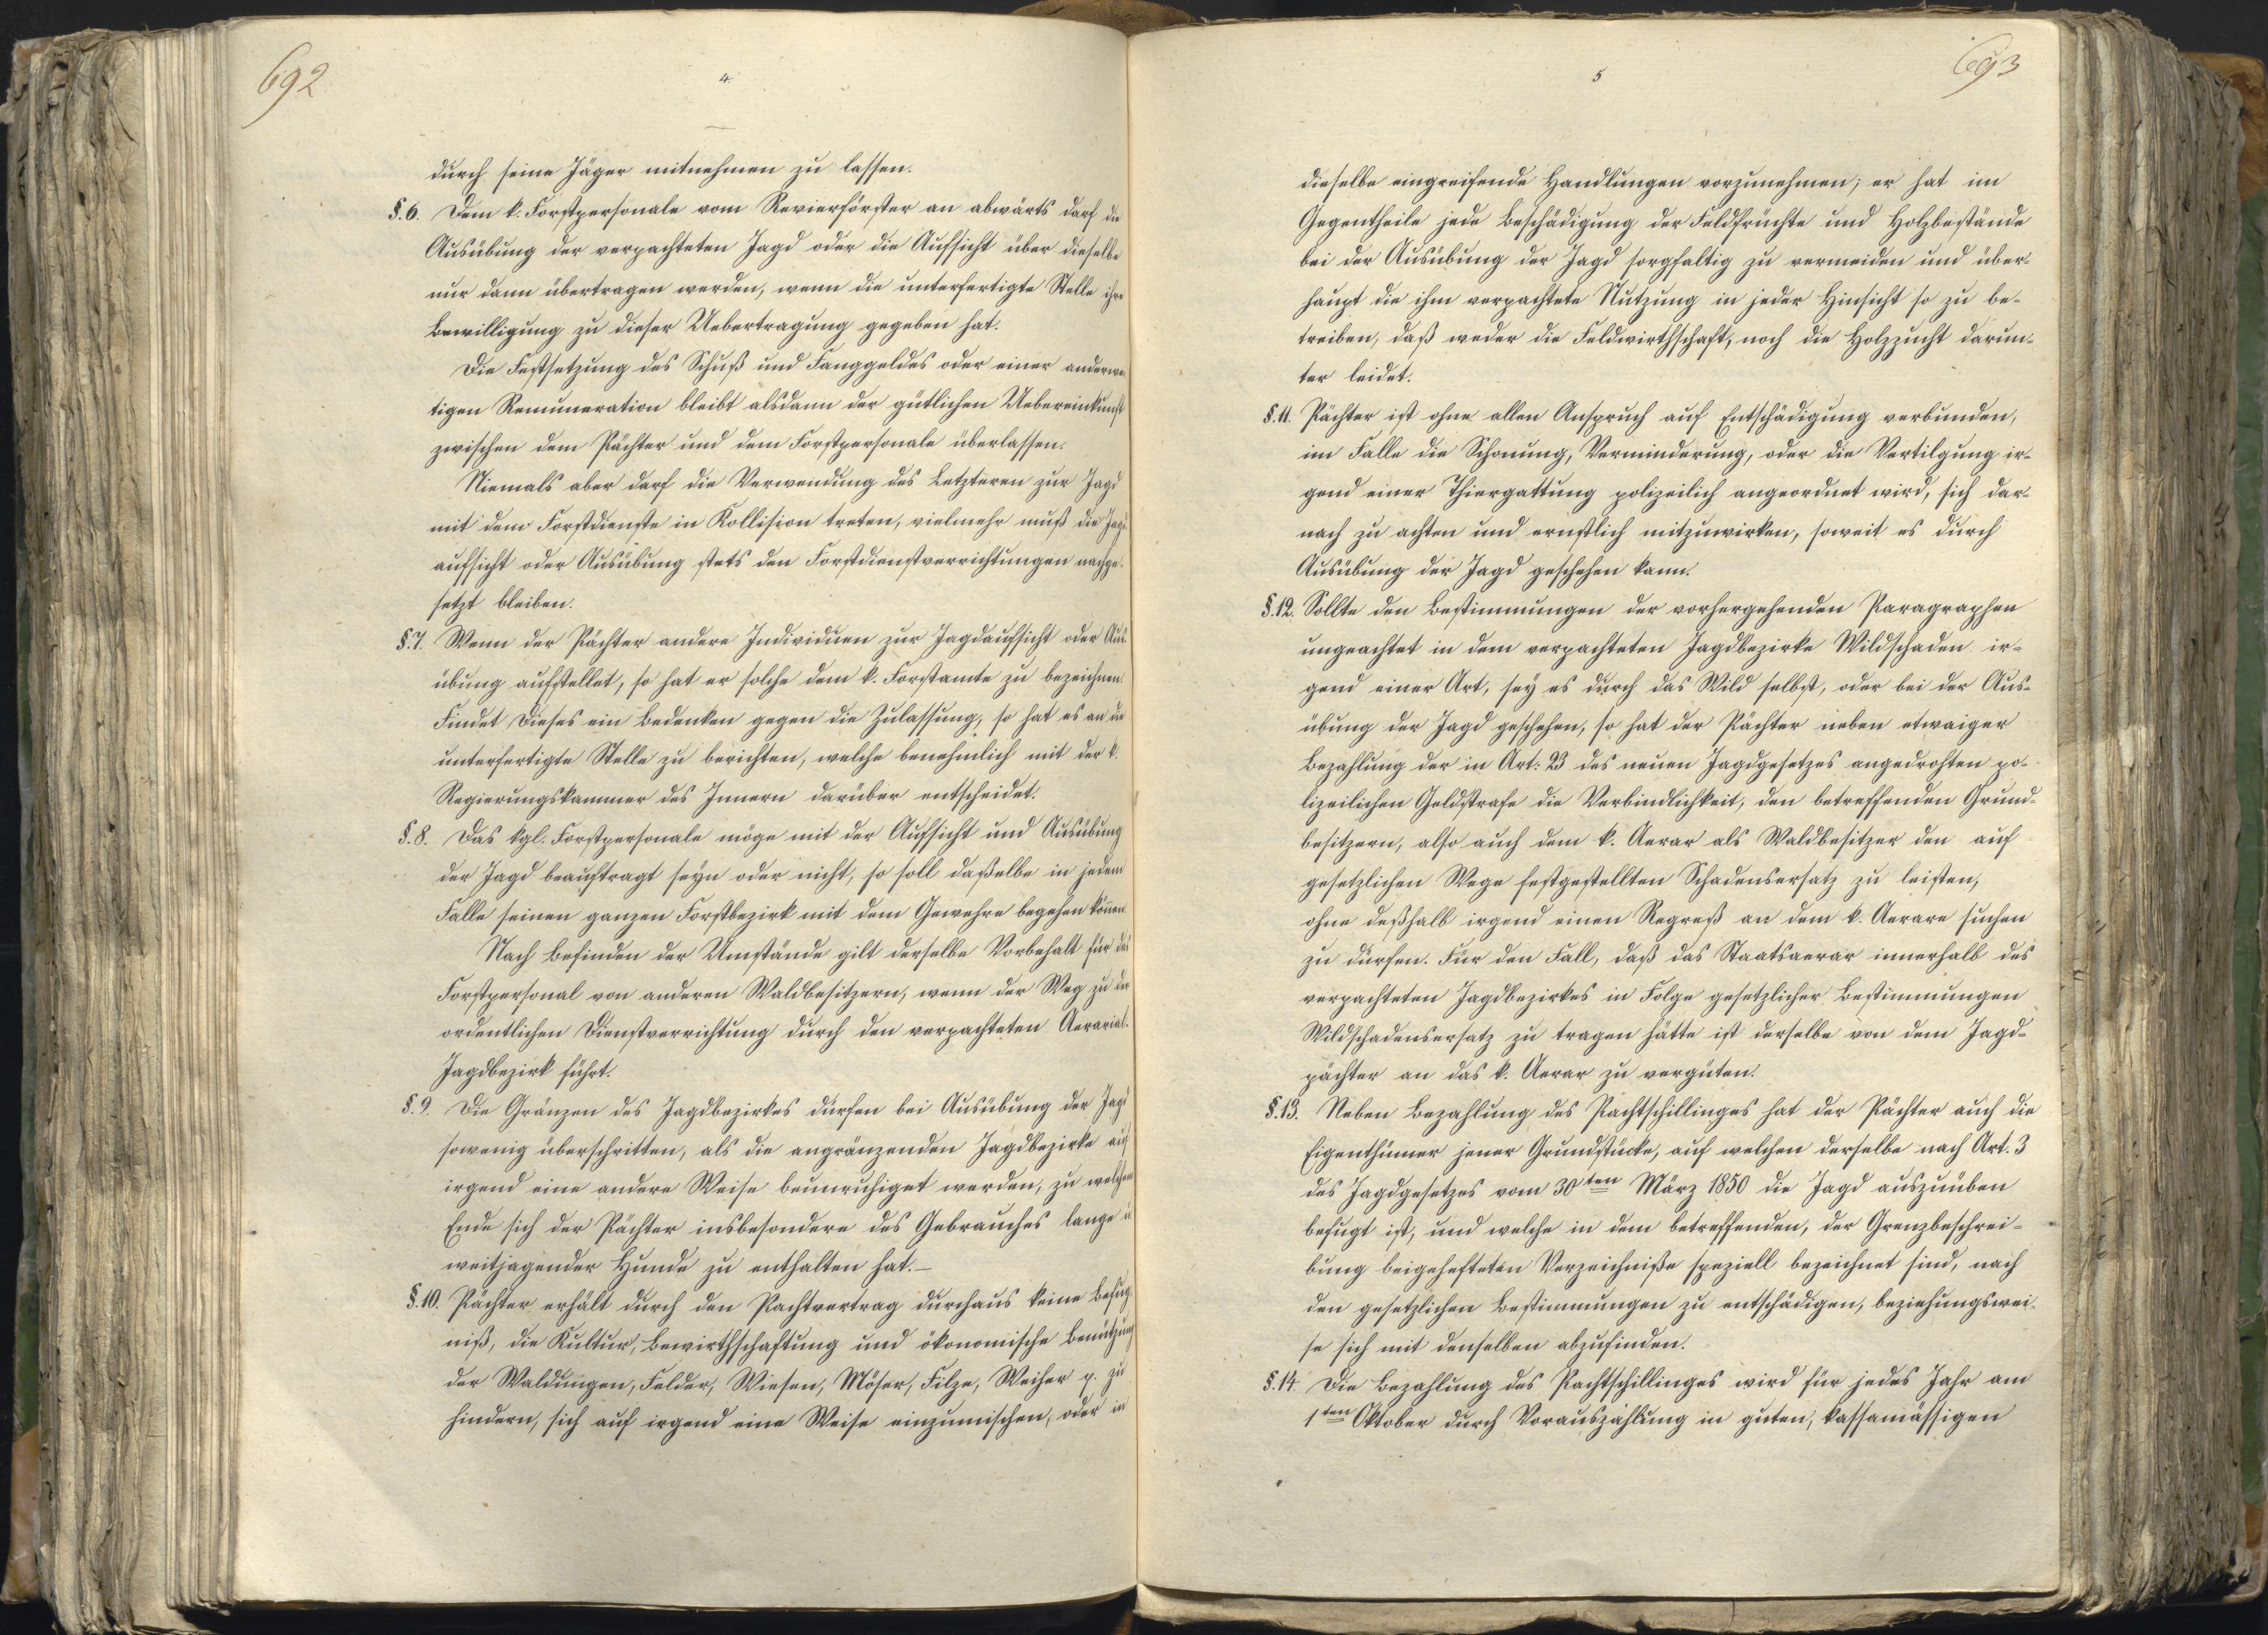 692
4
durch seine Jäger mitnehmen zu lassen.
§. 6. Dem k. Forstpersonale vom Revierförster an abwärts darf die
Ausübung der verpachteten Jagd oder die Aufsicht über dieselbe
nur dann übertragen werden, wenn die unterfertigte Stelle ihre
Bewilligung zu dieser Uebertragung gegeben hat.
Die Festsetzung des Schuß und Fanggeldes oder einer anderwei
tigen Remuneration bleibt alsdann der gütlichen Uebereinkunft
zwischen dem Pächter und dem Forstpersonale überlassen.
Niemals aber darf die Verwendung des Letzteren zur Jagd
mit dem Forstdienste in Kollision treten, vielmehr muß die Jagd-
aufsicht oder Ausübung stets den Forstdienstverrichtungen nachge-
setzt bleiben.
§. 7. Wenn der Pächter andere Individuen zur Jagdaufsicht oder Aus-
übung aufstellet, so hat er solche dem k. Forstamte zu bezeichnen.
Findet dieses ein Bedenken gegen die Zulassung, so hat es an die
unterfertigte Stelle zu berichten, welche benehmlich mit der k.
Regierungskammer des Innern darüber entscheidet.
§. 8. Das kgl. Forstpersonale möge mit der Aufsicht und Ausübung
der Jagd beauftragt seyn oder nicht, so soll daßelbe in jedem
Falle seinen ganzen Forstbezirk mit dem Gewehre begehen können.
Nach Befinden der Umstände gilt derselbe Vorbehalt für das
Forstpersonal von anderen Waldbesitzern, wenn der Weg zu der
ordentlichen Dienstverrichtung durch den verpachteten Aerarial-
Jagdbezirk führt.
§. 9. Die Gränzen des Jagdbezirkes dürfen bei Ausübung der Jagd
sowenig überschritten, als die angränzenden Jagdbezirke auf
irgend eine andere Weise beunruhiget werden, zu welchem
Ende sich der Pächter insbesondere des Gebrauches lange u
weitjagender Hunde zu enthalten hat.—
§. 10. Pächter erhält durch den Pachtvertrag durchaus keine Befug-
niß, die Kultur, Bewirthschaftung und ökonomische Benützung
der Waldungen, Felder, Wiesen, Möser, Filze, Weiher p. zu
hindern, sich auf irgend eine Weise einzumischen, oder in
693
5
dieselbe eingreifende Handlungen vorzunehmen; er hat im
Gegentheile jede Beschädigung der Feldfrüchte und Holzbestände
bei der Ausübung der Jagd sorgfaltig zu vermeiden und über-
haupt die ihm verpachtete Nutzung in jeder Hinsicht so zu be-
treiben, daß weder die Feldwirthschaft, noch die Holzzucht darun-
ter leidet.
§. 11. Pächter ist ohne allen Anspruch auf Entschädigung verbunden,
im Falle die Schonung, Verminderung, oder die Vertilgung ir-
gend einer Thiergattung polizeilich angeordnet wird, sich dar-
nach zu achten und ernstlich mitzuwirken, soweit es durch
Ausübung der Jagd geschehen kann.
§. 12. Sollte den Bestimmungen der vorhergehenden Paragraphen
ungeachtet in dem verpachteten Jagdbezirke Wildschaden ir-
gend einer Art, sey es durch das Wild selbst, oder bei der Aus-
übung der Jagd geschehen, so hat der Pächter neben etwaiger
Bezahlung der in Art: 23 des neuen Jagdgesetzes angedrohten po-
lizeilichen Geldstrafe die Verbindlichkeit, den betreffenden Grund-
besitzern, also auch dem k. Aerar als Waldbesitzer den auf
gesetzlichen Wege festgestellten Schadensersatz zu leisten,
ohne deßhalb irgend einen Regreß an dem k. Aerare suchen
zu dürfen. Für den Fall, daß das Staatsaerar innerhalb des
verpachteten Jagdbezirkes in Folge gesetzlicher Bestimmungen
Wildschadensersatz zu tragen hätte ist derselbe von dem Jagd-
pächter an das k. Aerar zu vergüten.
§. 13. Neben Bezahlung des Pachtschillinges hat der Pächter auch die
Eigenthümer jener Grundstücke, auf welchen derselbe nach Art. 3
des Jagdgesetzes vom 30ten März 1850 die Jagd auszuüben
befugt ist, und welche in dem betreffenden, der Grenzbeschrei-
bung beigehefteten Verzeichniße speziell bezeichnet sind, nach
den gesetzlichen Bestimmungen zu entschädigen, beziehungswei-
se sich mit denselben abzufinden.
§. 14. Die Bezahlung des Pachtschillinges wird für jedes Jahr am
1ten Oktober durch Vorauszahlung in guten, kassamässigen